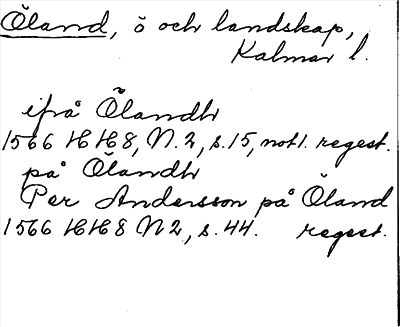 Öland, ö och landskap,
Kalmar l.
ifrå Ölandh
1566 HH8, N. 2, s. 15, not 1. regest.
på Ölandh
Per Andersson på Öland
1566 HH8 N2, s. 44. regest.